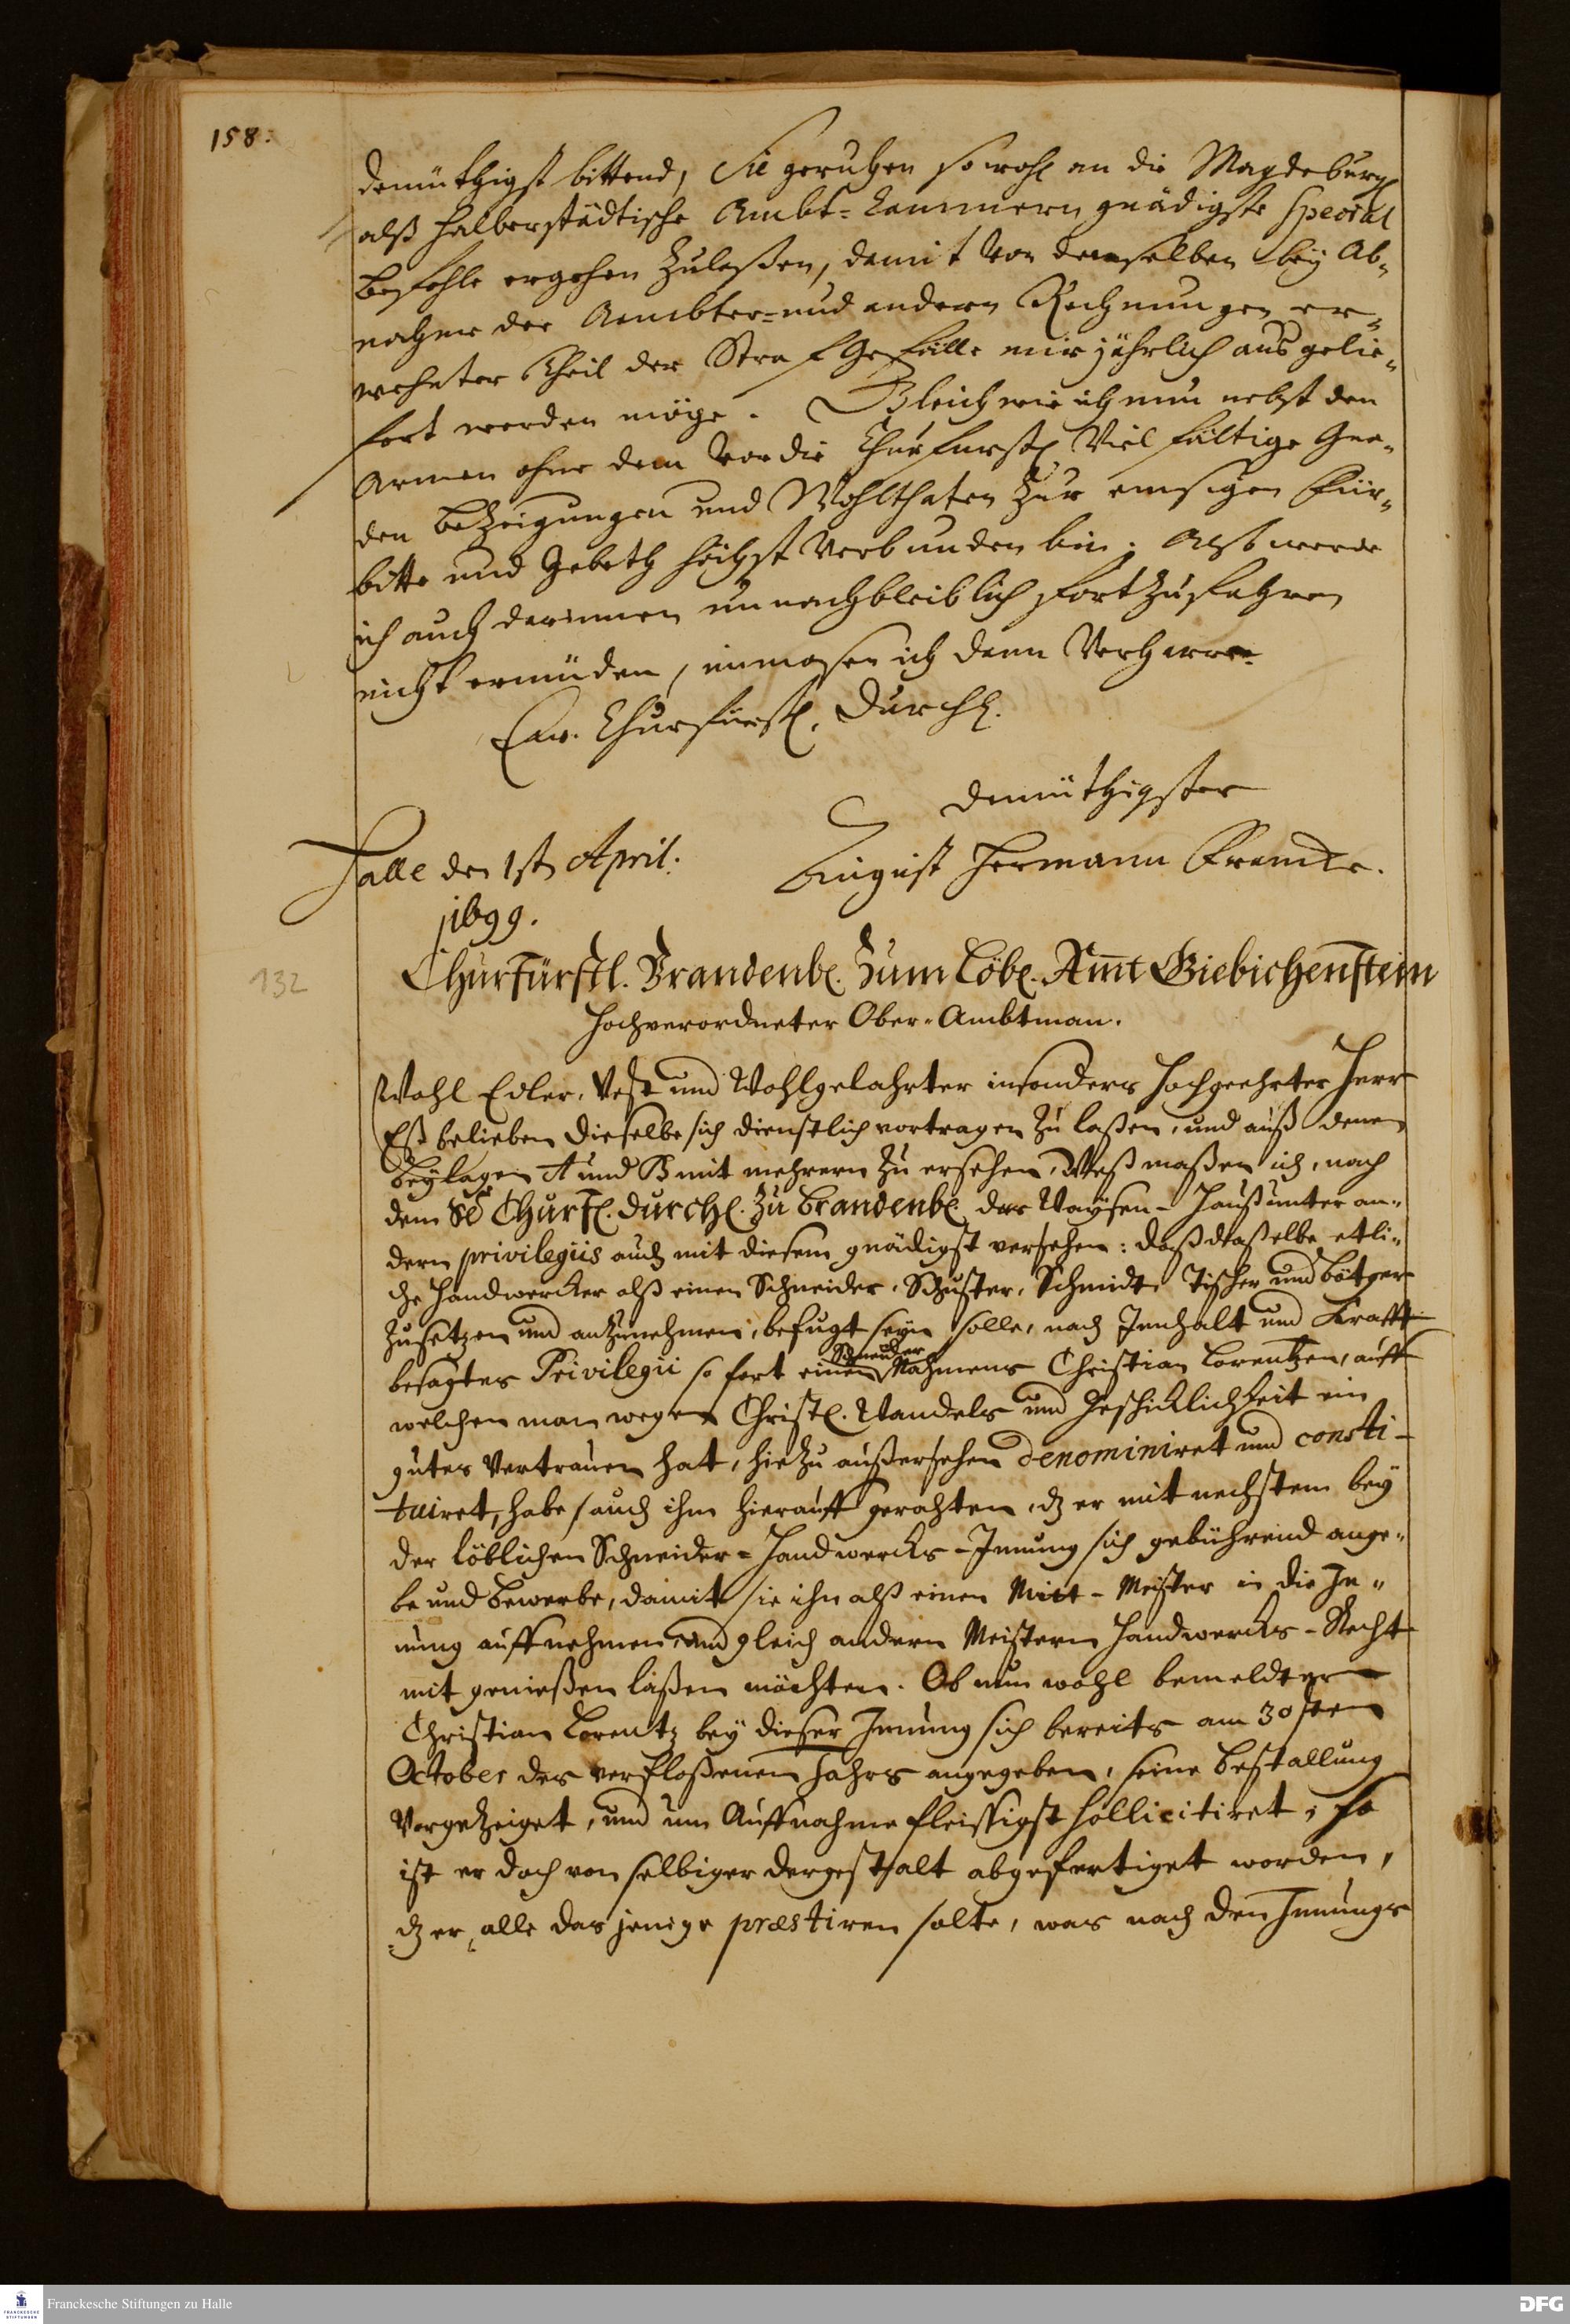 158.
demüthigst bittend, Sie geruhen sowohl an die Magdeburg.
alß Halberstädtische Ambt-Cammern gnädigste Special
Befehle ergehen zulaßen, damit von denselben bey Ab„
nahme der Aembter- und andern Rechnungen er„
wehnter Theil der Straf Gefälle mir jährlich ausgelie„
fert werden möge. Gleichwie ich nun nebst den
Armen ohne dem vor die Churfürstl. Vielfältige Gna„
den bezeigungen und Wohlthaten zur emsigen Für„
bitte und Gebeth höchst verbunden bin; Also werde
ich auch darinnen unnachbleiblich fortzufahren
nicht ermüden, inmaßen ich denn verharre
Ew. Churfürstl. Durchl.
demüthigster
Halle den 1st. April. August Hermann Francke.
1699.
132
Churfürstl. Brandenbl. Zum Löbl. Amt Giebichenstein
Hochverordneter Ober-Ambtman.
Wohl Edler, Vest und Wohlgelahrter insonders Hochgeehrter Herr
Eß belieben dieselbe sich dienstlich vortragen zu laßen, und auß denen
Beylagen A und B mit mehrern zu ersehen, Weßmaßen ich, nach
dem Se Churfl. Durchl. zu Brandenbl. das Waysen-Hauß unter an„
dern privilegiis auch mit diesem gnädigst versehen: daß daßelbe etli„
che Handwercker alß einen Schneider, Schuster, Schmidt, Tischer und Bötger
zusetzen und anzunehmen, befugt seyn solle, nach Innhalt und Krafft
besagtes Privilegii so fort einen Schneider Nahmens Christian Lorentzen, auff
welchen man wegen Christl. Wandels und Geschicklichkeit ein
gutes Vertrauen hat, hiezu außersehen denominiret und consti-
tuiret, habe auch ihm hierauff gerahten, dz er mit nechstem bey
der löblichen Schneider-Handwercks-Innung sich gebührend ange„
be und bewerbe, damit sie ihn alß einen Mitt-Meister in die In„
nung auffnehmen, und gleich andern Meistern Handwercks-Recht
mit genießen laßen möchten. Ob nun wohl bemeldter
Christian Lorentz bey dieser Innung sich bereits am 30sten
October des verfloßenen Jahrs angegeben, seine Bestallung
vorgezeiget, und um Auffnahme fleissigst sollicitiret, so
ist er doch von selbiger dergestalt abgefertiget worden,
dz er alle dasjenige præstiren solte, was nach den Innungs
Franckesche Stiftungen zu Halle
FRANCKESCHE STIFTUNGEN
DFG